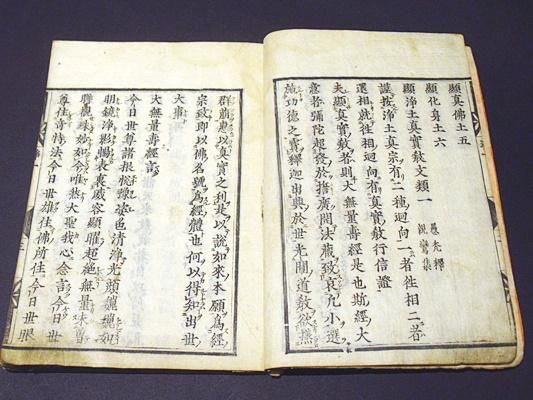 顯真佛土五
顯化身土六
顯淨土真實教文類一
愚禿釋
親鸞集
謹按淨土真宗有二種迴向一者往相二者
還相就往相迴向有真實教行信證
夫顯真實教者則大無量壽經是也斯經大
意者彌陀超發於誓廣開法藏致哀凡小選
施功德之寶釋迦出興於世光闡道教欲拯
群萠惠以真實之利是以說如來本願為經
宗致即以佛名號為經體也何以得知出世
大事
大無量壽經言
今日世尊諸根悅豫姿色清淨光顏巍巍如
明鏡淨影暢表裏威容顯曜超絕無量未曾
瞻覩殊妙如今唯然大聖我心念言今日世
尊住奇特法今日世雄住佛所住今日世眼